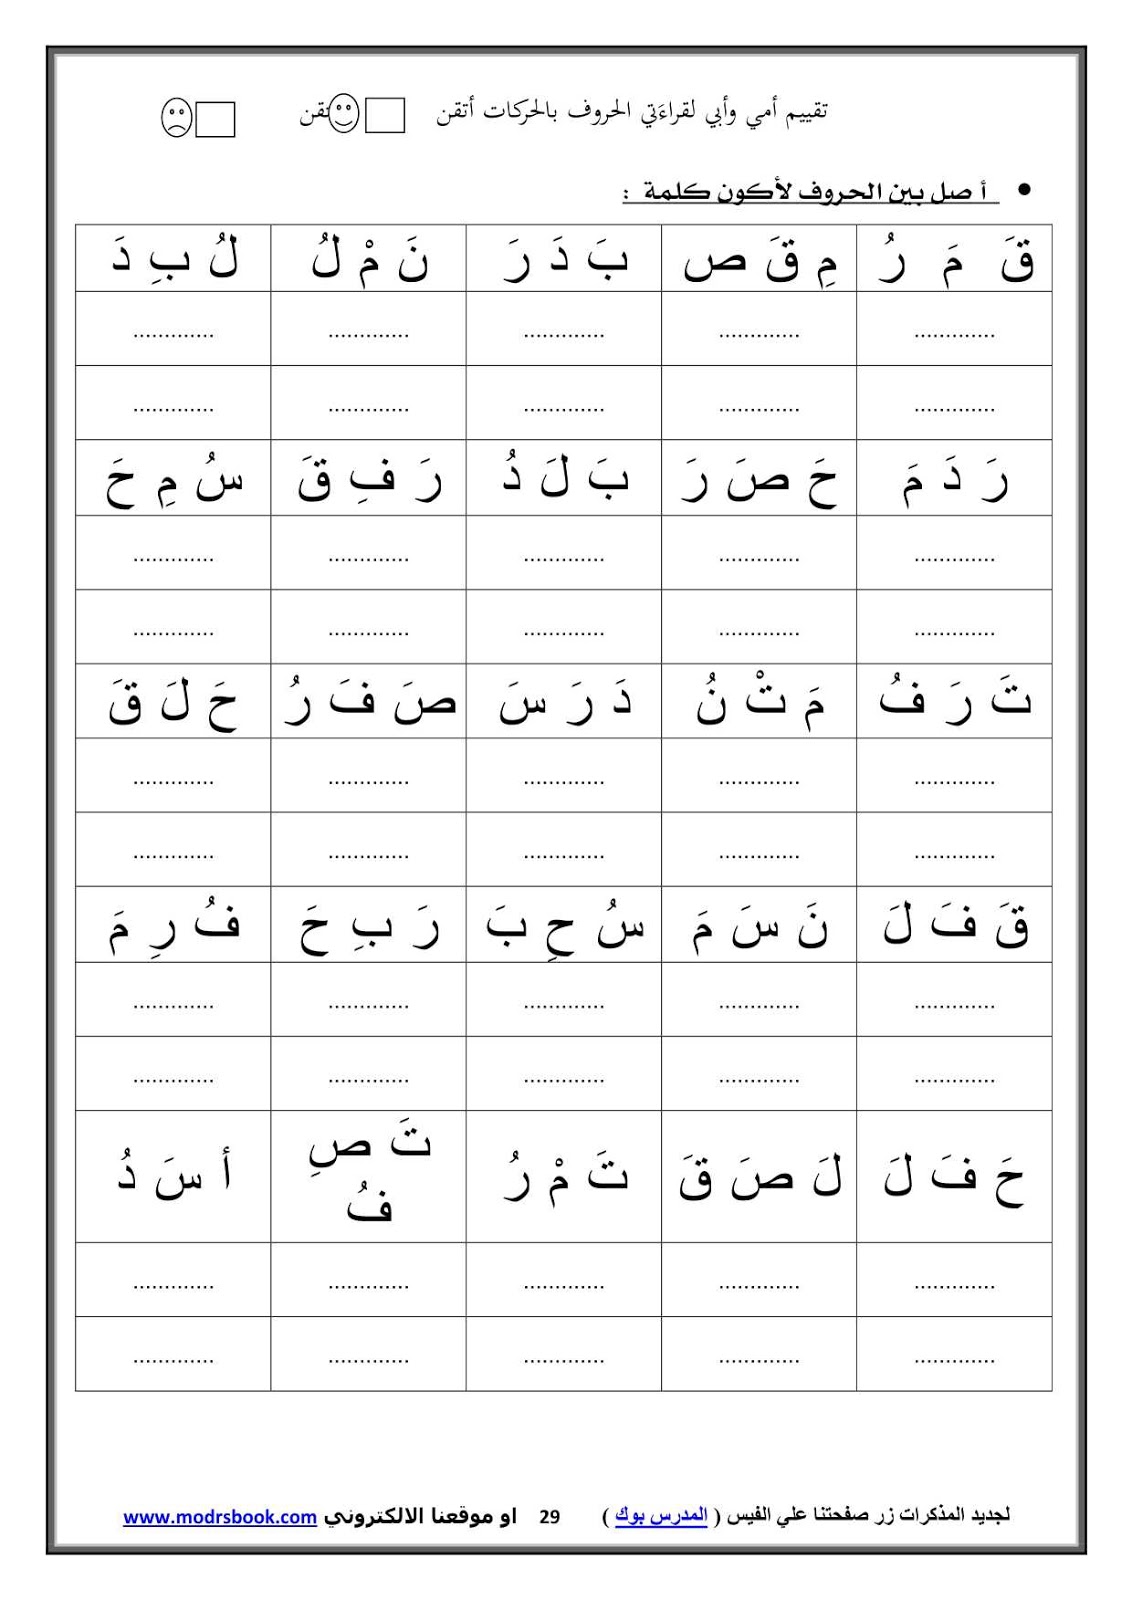 تقييم أمي وأبي لقراءَتي الحروف بالحركات أتقن تقن
• أ صل بين الحروف لأكون كلمة :
قَ مَ رُ مِ قَ ص بَ دَ رَ نَ مْ لُ لُ بِ دَ
............. ............. ............. ............. .............
............. ............. ............. ............. .............
رَ دَ مَ حَ صَ رَ بَ لَ دُ رَ فِ قَ سُ مِ حَ
............. ............. ............. ............. .............
............. ............. ............. ............. .............
تَ رَ فُ مَ تْ نُ دَ رَ سَ صَ فَ رُ حَ لَ قَ
............. ............. ............. ............. .............
............. ............. ............. ............. .............
قَ فَ لَ نَ سَ مَ سُ حِ بَ رَ بِ حَ فُ رِ مَ
............. ............. ............. ............. .............
............. ............. ............. ............. .............
حَ فَ لَ لَ صَ قَ تَ مْ رُ تَ صِ فُ أ سَ دُ
............. ............. ............. ............. .............
............. ............. ............. ............. .............
لجديد المذكرات زر صفحتنا علي الفيس ( المدرس بوك ) 29 او موقعنا الالكتروني www.modrsbook.com